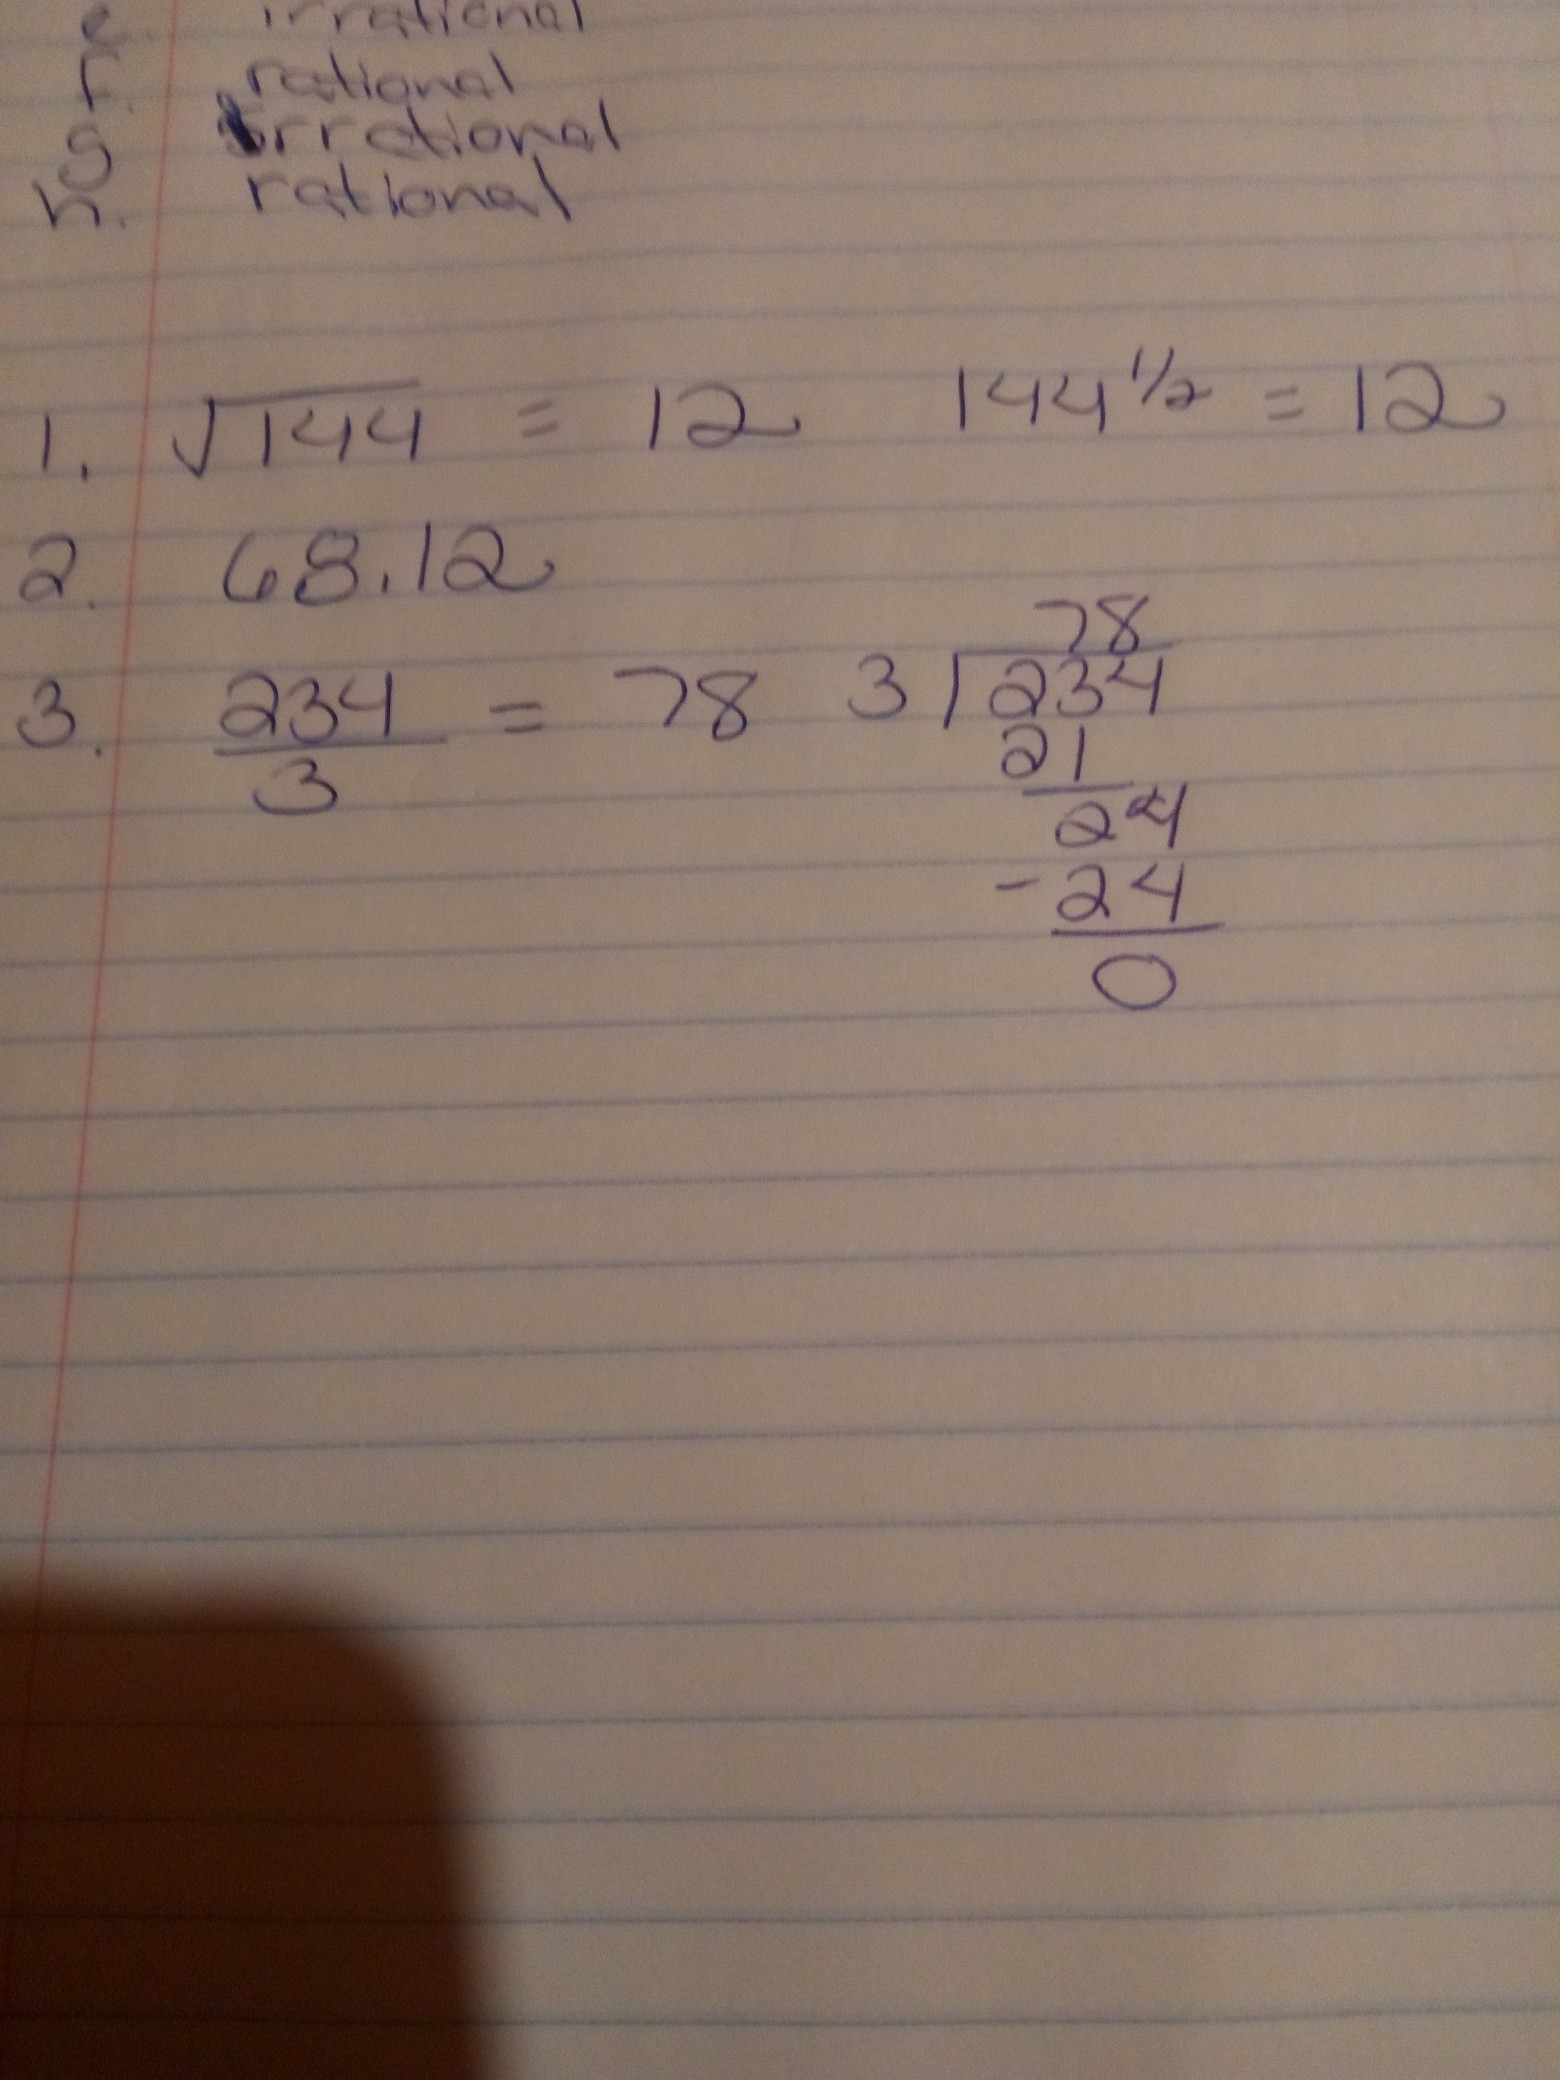 e. irrational
f. rational
g. irrational
h. rational
1. √144 = 12 144^1/2 = 12
2. 68.12
3. 234/3 = 78
78
3 ⟌ 234
21
24
- 24
0